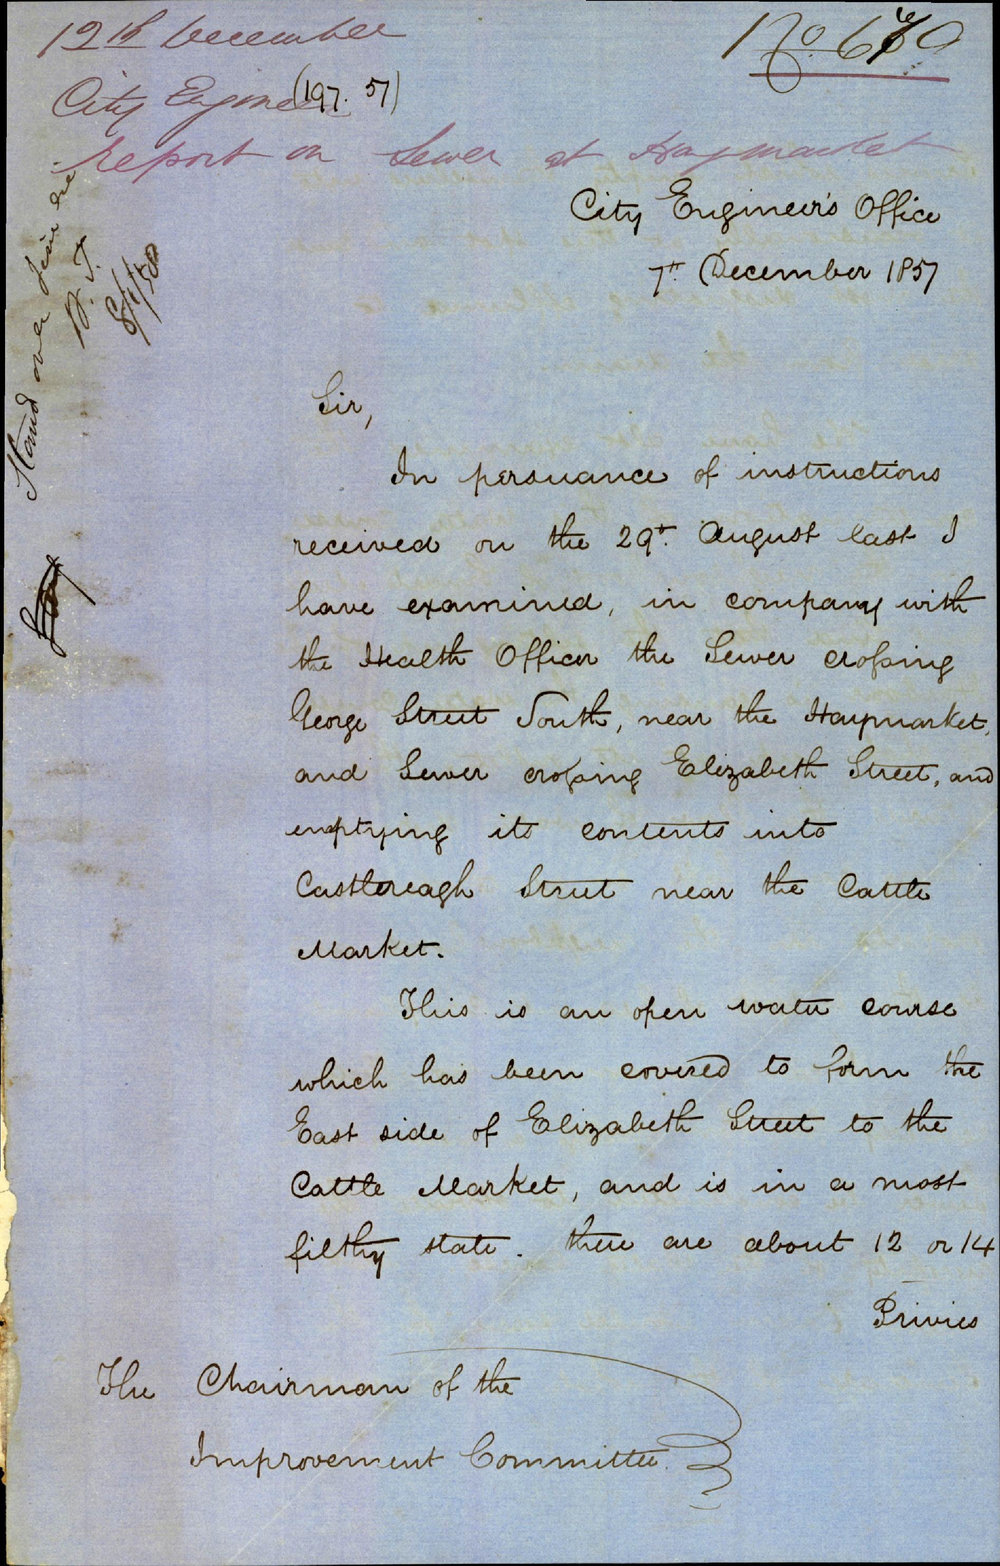 12th December
No. 670
City Engineer
(197. 57)
Report on Sewer at Haymarket
City Engineer's Office
7th December 1857
Stand over
8/1/58
Sir,
In persuance of instructions
received on the 29th. August last I
have examined, in company with
the Health Officer the Sewer crossing
George Street South, near the Haymarket,
and Sewer crossing Elizabeth Street, and
emptying its contents into
Castlereagh Street near the Cattle
Market.
This is an open water course
which has been covered to form the
East side of Elizabeth Street to the
Cattle Market, and is in a most
filthy state. there are about 12 or 14
Privies
The Chairman of the
Improvement Committee.